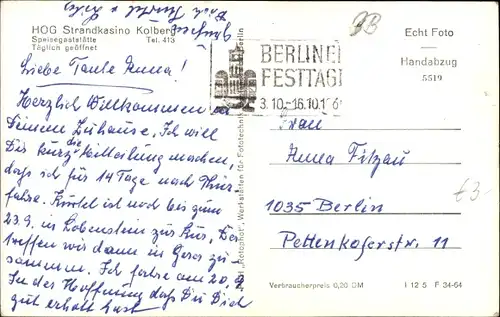 HOG Strandkasino Kolberg
Speisegaststätte
Täglich geöffnet Tel. 413
Liebe Tante Anna!
Herzlich Willkommen in
Deinem Zuhause. Ich will
Dir kurz die Mitteilung machen,
daß ich für 14 Tage nach Thür.
fahre. Kurtel ist noch bis zum
23.9. in Lobenstein zur Kur, Der
treffen wir dann in Gera zu-
sammen. Ich fahre am 20.9.
In der Hoffnung daß Du Dich
gut erholt hast
BERLINER
FESTTAGE
3.10.-16.10.
Echt Foto
Handabzug
5519
Frau
Anna Fitzau
1035 Berlin
Pettenkoferstr. 11
£3-
Verbraucherpreis 0,20 DM I 12 5 F 34-64